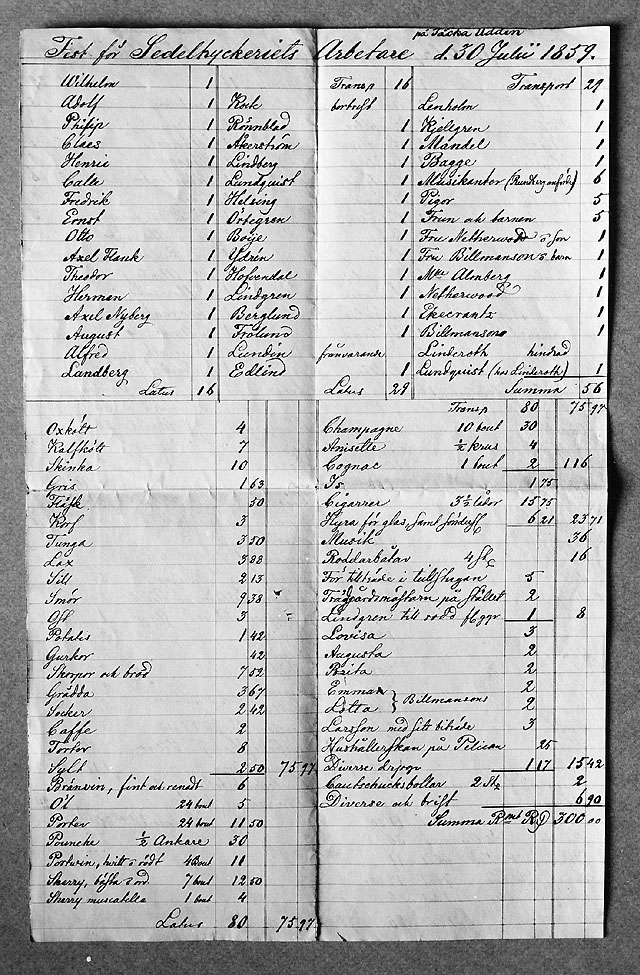 på Täcka Udden
Fest för Sedeltryckeriets Arbetare d. 30 Julii 1859.
Wilhelm 1
Adolf 1
Philip 1
Claes 1
Henric 1
Calle 1
Fredrik 1
Ernst 1
Otto 1
Axel Flank 1
Theodor 1
Herman 1
Axel Nyberg 1
August 1
Alfred 1
Landberg 1
Latus 16
Transp 16
Kock bortrest
Rönnblad 1
Åkerström 1
Lindberg 1
Lundquist 1
Helsing 1
Örtegren 1
Boije 1
Ydrén 1
Hofvendal 1
Lindgren 1
Berglund 1
Frölund 1
Lundin frånvarande
Edlind 1
Latus 29
Transport 29
Lenholm 1
Kjellgren 1
Mandel 1
Bagge 1
Musikanter (Rundberg anförde) 6
Pigor 5
Frun och barnen 5
Fru Netherwood o son 1
Fru Billmanson o barn 1
Mlle Almberg 1
Netherwood 1
Ekecrantz 1
Billmanson 1
Linderoth hindrad
Lundquist (hos Linderoth) 1
Summa 56
Oxkött 4
Kalfkött 7
Skinka 10
Gris 1 63
Fläsk 50
Korf 3
Tunga 3 50
Lax 3 88
Sill 2 13
Smör 9 38
Ost 3
Potates 1 42
Gurkor 42
Skorpor och bröd 7 52
Grädda 3 67
Socker 2 42
Caffe 2
Tortor 8
Sylt 2 50 75 97
Bränvin, fint och renadt 6
Öl 24 bout 5
Porter 24 bout 11 50
Pounche ½ Ankare 30
Portvin, hvitt o rödt 4 Bout 11
Sherry, bästa o ord 7 bout 12 50
Sherry muscatella 1 bout 4
Latus 80 75 97
Transp 80 75 97
Champagne 10 bout 30
Anisette ½ krus 4
Cognac 1 bout 2 116
Is 1 75
Cigarrer 3½ lådor 15 75
Hyra för glas, samt sönders 6 21 23 71
Musik 36
Roddarbåtar 4 st 16
För tillträde i lilla stugan 5
Trädgårdsmästarn på stället 2
Lindgren till rodd fl ggr 1 8
Lovisa 3
Augusta 2
Brita 2
Emma 2
Lotta } Billmansons 2
Larsson med sitt biträde 3
Hushållerskan på Pelican 25
Diverse 1 17 15 42
Cautschucksbollar 2 St 2
Diverse och brist 6 90
Summa Rmt Rd 300 00